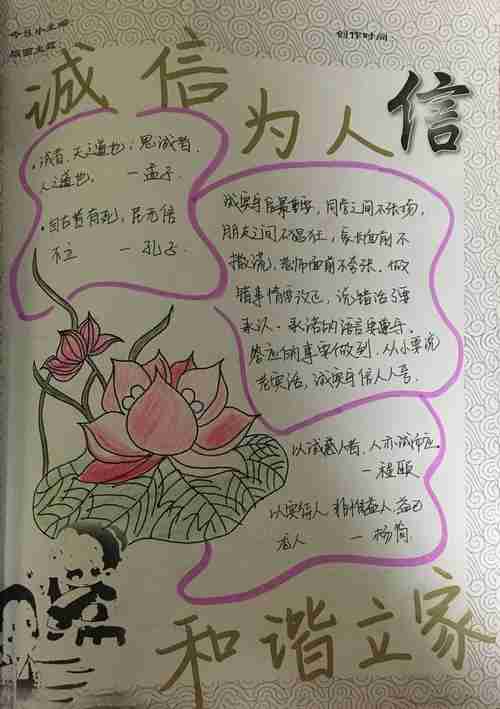 今日小主编：
版面主题：
创作时间：
诚信
为人
信
·诚者，天之道也；思诚者，
人之道也。 —孟子
·自古皆有死，民无信
不立 —孔子
诚实守信最重要，同学之间不张扬，
朋友之间不
家长面前不
撒谎，老师面前不夸张。做
错事情要改正，说错话要
承认，承诺的语言要遵守，
答应的事要做到，从小要说
老实话，诚实守信人人夸。
以诚感人者，人亦诚而应。
—程颐
以实待人，非惟益人，益己
尤大 —杨简
和谐立家